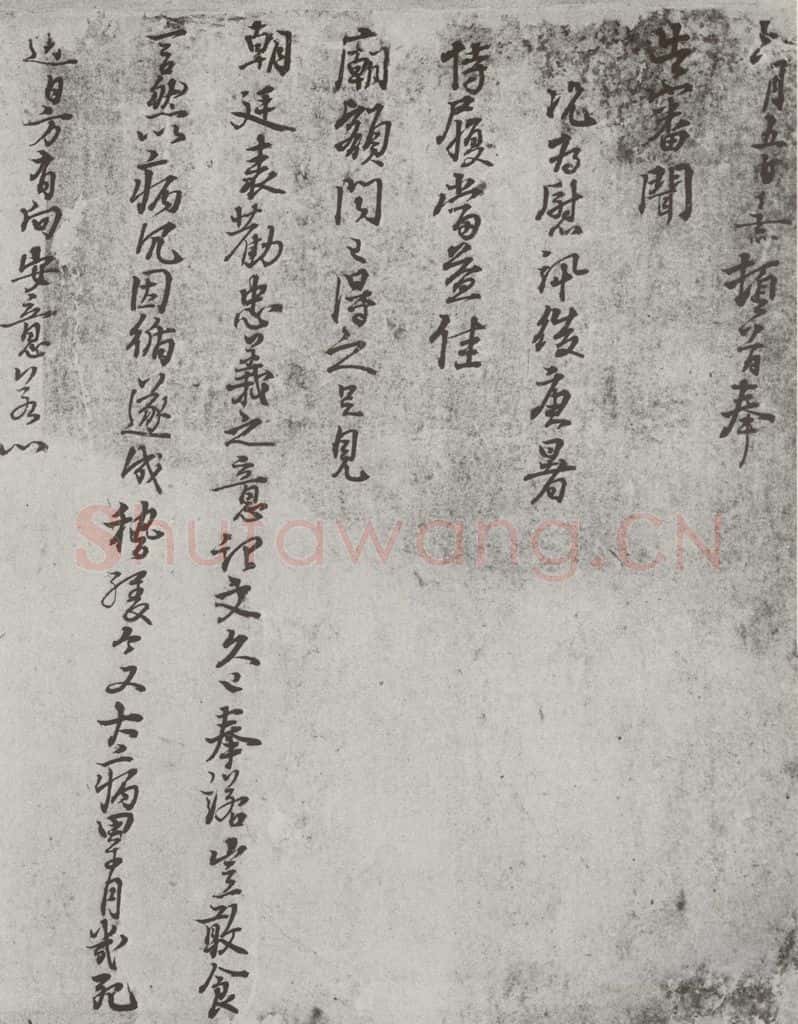 六月五日熹頓首奉
告審聞
況為慰訊後庚暑
侍履當益佳
廟額聞已得之足見
朝廷表勸忠義之意記文久已奉諾豈敢食
言然以病冗因循遂成稽緩今又大病累月幾死
近日方有向安意若以
Shufawang.CN